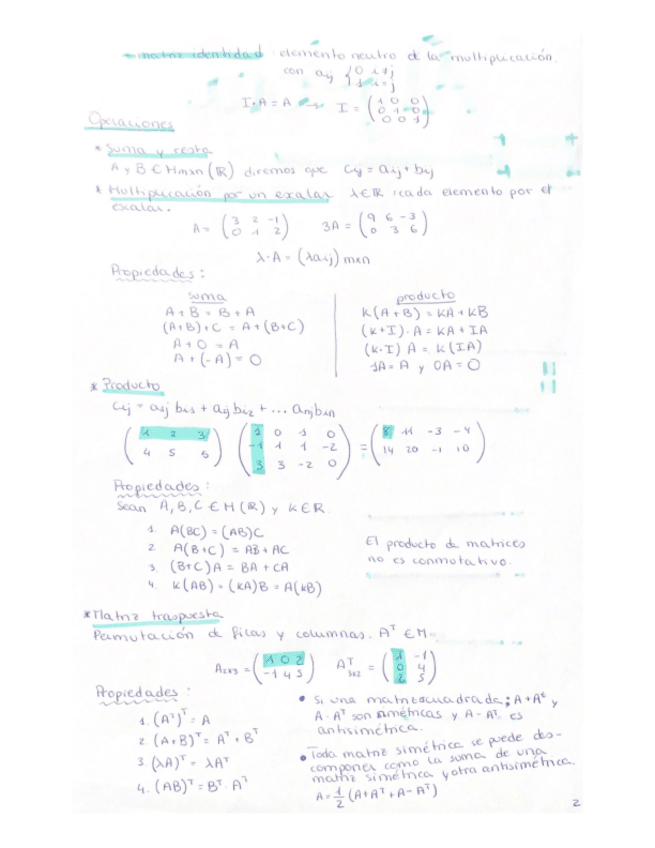 * matriz identidad: elemento neutro de la multiplicación.
con aij { 0 i≠j
1 i=j
I·A = A → I = ( 1 0 0
0 1 0
0 0 1 )
Operaciones
* Suma y resta
A y B ∈ Mmxn (ℝ) diremos que Cij = aij + bij
* Multiplicación por un escalar λ∈ℝ : cada elemento por el
escalar.
A = ( 3 2 -1
0 1 2 ) 3A = ( 9 6 -3
0 3 6 )
λ·A = (λaij) mxn
Propiedades:
suma
A + B = B + A
(A+B)+C = A+(B+C)
A + 0 = A
A + (-A) = 0
producto
K(A+B) = KA + KB
(K+I)·A = KA + IA
(K·I) A = K(IA)
1A = A y 0A = 0
* Producto
Cij = a1j bi1 + aij bi2 + ... anj bin
( 1 2 3
4 5 6 ) ( 1 0 1 0
-1 1 1 -2
3 3 -2 0 ) = ( 8 11 -3 -4
14 20 -1 10 )
Propiedades:
Sean A, B, C ∈ M (ℝ) y K∈ℝ.
1. A(BC) = (AB)C
2. A(B+C) = AB + AC
3. (B+C)A = BA + CA
4. K(AB) = (KA)B = A(KB)
El producto de matrices
no es conmutativo.
* Matriz traspuesta
Permutación de filas y columnas. Aᵀ ∈ M
A2x3 = ( 1 0 2
-1 4 5 ) Aᵀ3x2 = ( 1 -1
0 4
2 5 )
Propiedades:
1. (Aᵀ)ᵀ = A
2. (A+B)ᵀ = Aᵀ + Bᵀ
3. (λA)ᵀ = λAᵀ
4. (AB)ᵀ = Bᵀ · Aᵀ
• Si una matriz cuadrada; A + Aᵗ y
A · Aᵀ son simétricas y A - Aᵗ es
antisimétrica.
• Toda matriz simétrica se puede des-
componer como la suma de una
matriz simétrica y otra antisimétrica.
A = 1/2 (A + Aᵀ + A - Aᵀ)
2